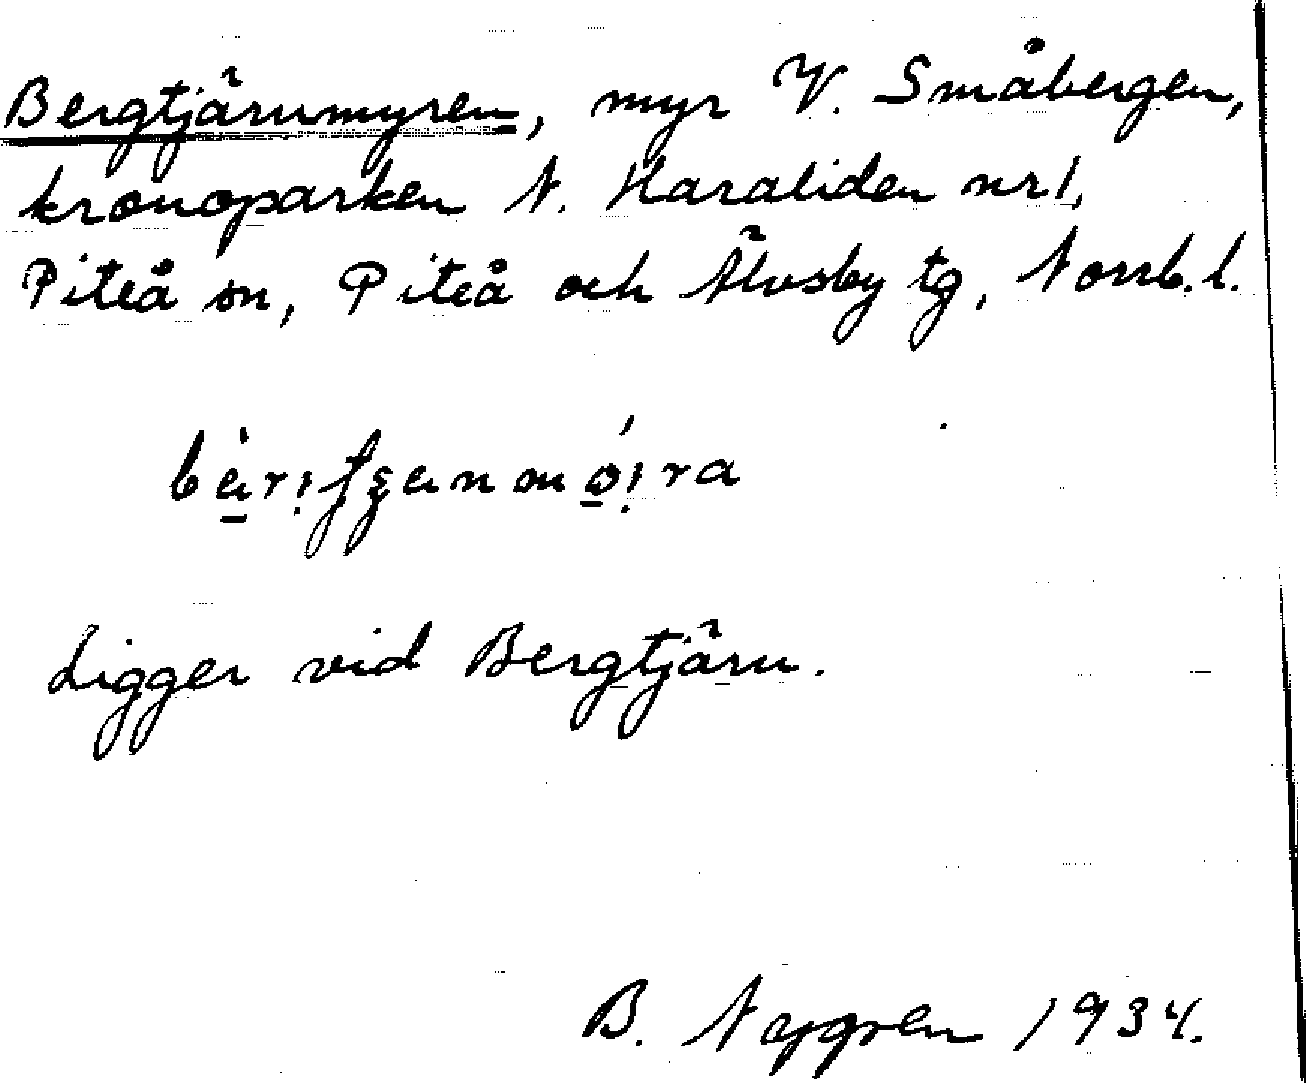 Bergtjärnmyren, myr V. Småbergen,
kronoparken N. Haraliden nr 1,
Piteå sn, Piteå och Älvsby tg, Norrb. l.
Ligger vid Bergtjärn.
B. Nygren 1934.